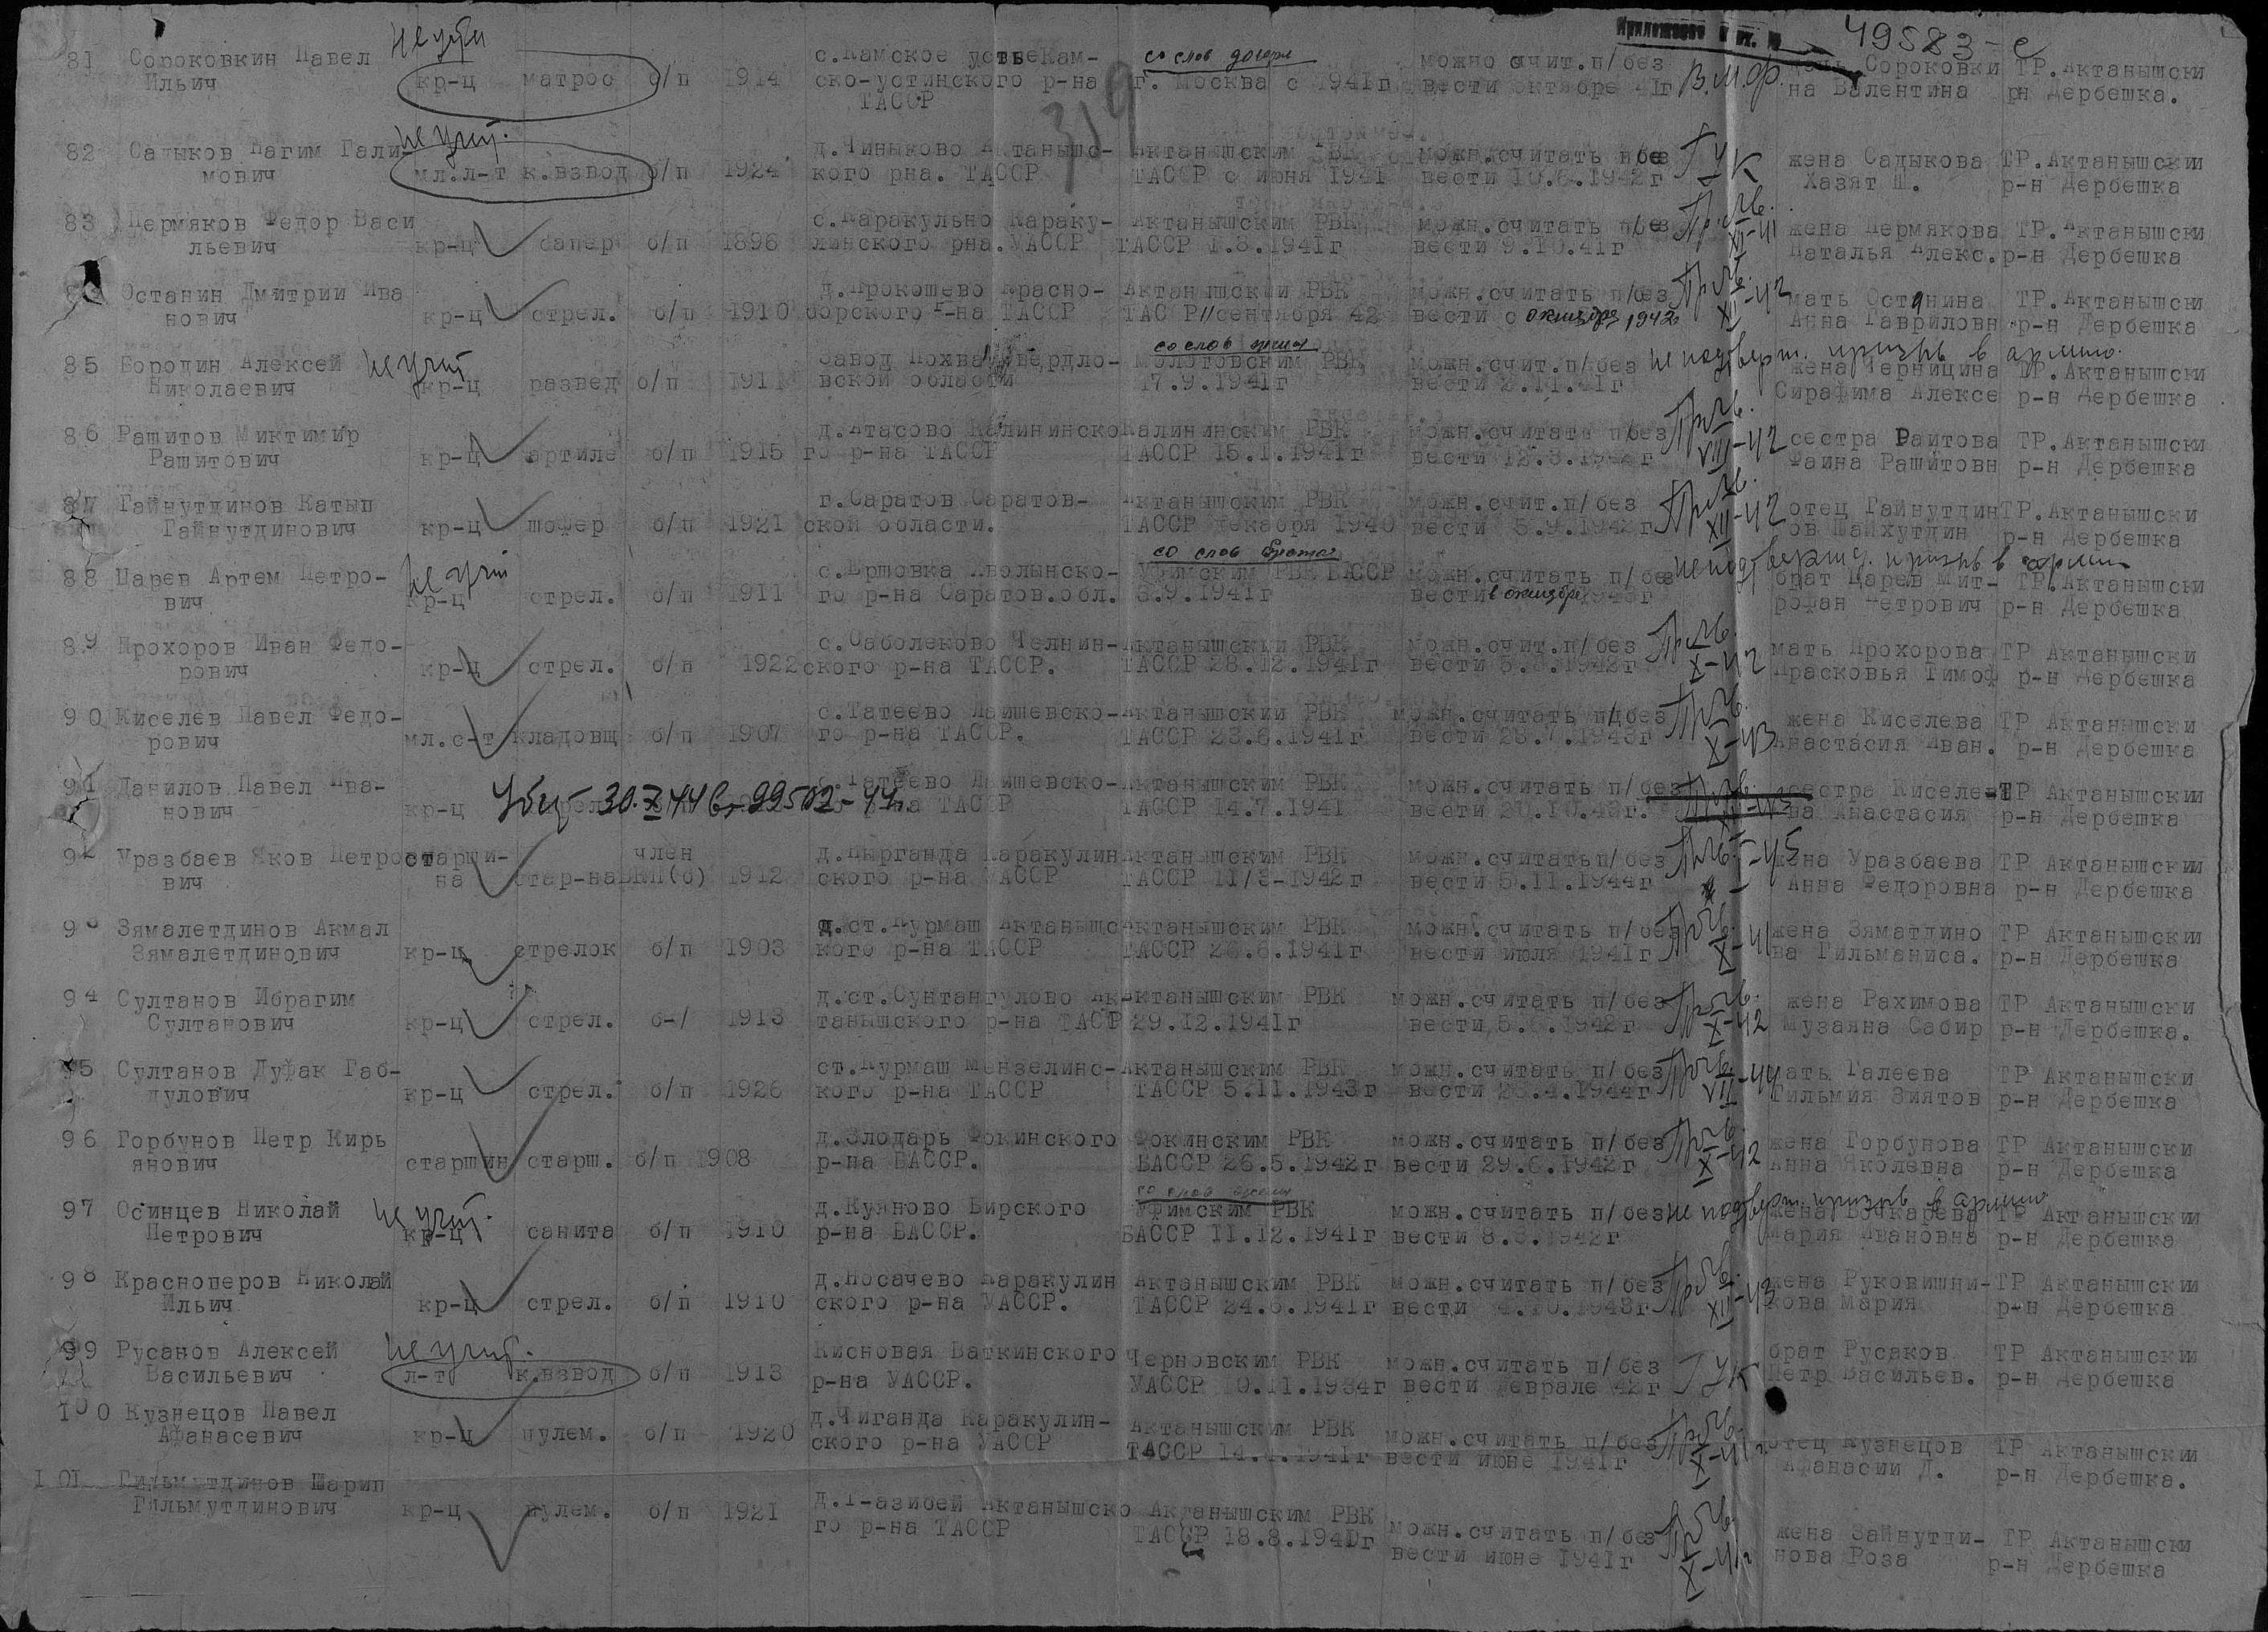 49583-с
319
81 Сороковкин Павел Ильич кр-ц матрос б/п 1914 с.Камское устьеКам-
ско-устинского р-на ТАССР со слов дочери г. Москва с 1941г можно счит.п/без вести октябре 41г В.М.Ф. дочь Сороковки на Валентина ТР.Актанышски рн Дербешка.
82 Садыков Нагим Гали-
мович не учит. мл.л-т к.взвод б/п 1924 д.Чиняково Актанышс-
кого рна. ТАССР Актанышским РВК ТАССР с июня 1941 можн.считать п/без вести 10.6.1942г ГУК жена Садыкова Хазят Ш. ТР.Актанышски р-н Дербешка
83 Пермяков Федор Васи
льевич кр-ц сапер б/п 1896 с.Каракульно Караку-
линского рна.УАССР Актанышским РВК ТАССР 1.8.1941г можн.считать п/без вести 9.10.41г жена Пермякова Наталья Алекс. ТР.Актанышски р-н Дербешка
Останин Дмитрии Ива
нович кр-ц стрел. б/п 1910 д.Прокошево Красно-
борского р-на ТАССР Актанышским РВК сентября 42 можн.считать п/без вести с октября 1942 мать Останина Анна Гавриловн ТР.Актанышски р-н Дербешка
85 Бородин Алексей
Николаевич не учит кр-ц развед б/п 1911 завод Свердло-
вской области со слов жены Молотовским РВК 17.9.1941г можн.счит.п/без вести 2.11.41г не подтверж. призыв в армию. жена Черницина Сирафима Алексе ТР.Актанышски р-н Дербешка
86 Рашитов Миктимир
Рашитович кр-ц артиле б/п 1915 д.Атасово Калининско
го р-на ТАССР Калининским РВК ТАССР 15.1.1941г можн.считать п/без вести VIII-42 сестра Раитова Фаина Рашитовн ТР.Актанышски р-н Дербешка
87 Гайнутдинов Катып
Гайнутдинович кр-ц шофер б/п 1921 г.Саратов Саратов-
ской области. Актанышским РВК ТАССР декабря 1940 можн.счит.п/без вести 5.9.1942г XII-42 отец Гайнутдин
ов Шайхутдин ТР.Актанышски р-н Дербешка
88 Царев Артем Петро-
вич не учит кр-ц стрел. б/п 1911 с.Ершовка Хволынско-
го р-на Саратов.обл. со слов брата Уфимским РВК 6.9.1941г можн.считать п/без вести в октябре не подтвержд. призыв в армию брат Царев Мит-
рофан Петрович ТР.Актанышски р-н Дербешка
89 Прохоров Иван Федо-
рович кр-ц стрел. б/п 1922 с.Саболеково Челнин-
ского р-на ТАССР. Актанышскии РВК ТАССР 28.12.1941г можн.счит.п/без вести X-42 мать Прохорова Прасковья Тимоф ТР Актанышски р-н Дербешка
90 Киселев Павел Федо-
рович мл.с-т кладовщ б/п 1907 с.Татеево Лаишевско-
го р-на ТАССР. Актанышскии РВК ТАССР 23.6.1941г можн.считать п/без вести 28.7.1943г X-43 жена Киселева Анастасия Иван. ТР Актанышски р-н Дербешка
91 Данилов Павел Ива-
нович кр-ц Убит 30.X 44 99502-44г. Татеево Лаишевско-
ТАССР Актанышским РВК ТАССР 14.7.1941 можн.считать п/без сестра Киселе
ва Анастасия ТР Актанышскии р-н Дербешка
92 Уразбаев Яков Петро
вич старши-
на стар-на член ВКП(б) 1912 д.Пырганда Каракулин
ского р-на УАССР Актанышским РВК ТАССР 11/3-1942г можн.считать п/без вести 5.11.1944г I-45 жена Уразбаева Анна Федоровна ТР Актанышскии р-н Дербешка
93 Зямалетдинов Акмал
Зямалетдинович кр-ц стрелок б/п 1903 д.ст.Курмаш Актанышс
кого р-на ТАССР Актанышским РВК ТАССР 26.6.1941г можн.считать п/без вести июля 1941г жена Зяматдино
ва Гильманиса. ТР Актанышскии р-н Дербешка
94 Султанов Ибрагим
Султанович кр-ц стрел. 1913 д.ст.Сунтангулово Ак
танышского р-на ТАСР Актанышским РВК 29.12.1941г можн.считать п/без вести X-42 жена Рахимова Музаяна Сабир ТР Актанышски р-н Дербешка.
95 Султанов Дуфак Габ-
дулович кр-ц стрел. б/п 1926 ст.Курмаш Мензелинс-
кого р-на ТАССР Актанышским РВК ТАССР 5.11.1943г можн.считать п/без вести VII-44 мать Галеева Гильмия Зиятов ТР Актанышски р-н Дербешка
96 Горбунов Петр Кирь
янович старшин старш. б/п 1908 д.Злодарь Фокинского
р-на БАССР. Фокинским РВК БАССР 26.5.1942г можн.считать п/без вести 29.6.1942г X-42 жена Горбунова Анна Яколевна ТР Актанышски р-н Дербешка
97 Осинцев Николай
Петрович не учит. кр-ц санита б/п 1910 д.Куяново Бирского
р-на БАССР. со слов жены Уфимским РВК БАССР 11.12.1941г можн.считать п/без вести не подтверж. призыв в армию жена Бочкарева Мария Ивановна ТР Актанышскии р-н Дербешка
98 Красноперов Николай
Ильич кр-ц стрел. б/п 1910 д.Носачево Каракулин
ского р-на УАССР. Актанышским РВК ТАССР 24.6.1941г можн.считать п/без вести 4.10.1943г XII-43 жена Руковишни-
кова Мария ТР Актанышскии р-н Дербешка
99 Русанов Алексей
Васильевич не учит. л-т к.взвод б/п 1913 Кисновая Ваткинского
р-на УАССР. Черновским РВК УАССР 10.11.1934г можн.считать п/без вести феврале 42г ГУК брат Русаков Петр Васильев. ТР Актанышскии р-н Дербешка
100 Кузнецов Павел
Афанасевич кр-ц пулем. б/п 1920 д.Чиганда Каракулин-
ского р-на УАССР Актанышским РВК ТАССР 14.4.1941г можн.считать п/без вести июне 1941г отец Кузнецов Афанасии Д. ТР Актанышскии р-н Дербешка.
101 Гильмутдинов Шарип
Гильмутдинович кр-ц пулем. б/п 1921 Актанышско
го р-на ТАССР Актанышским РВК ТАССР 18.8.1940г можн.считать п/без вести июне 1941г жена Зайнутди-
нова Роза ТР Актанышски р-н Дербешка